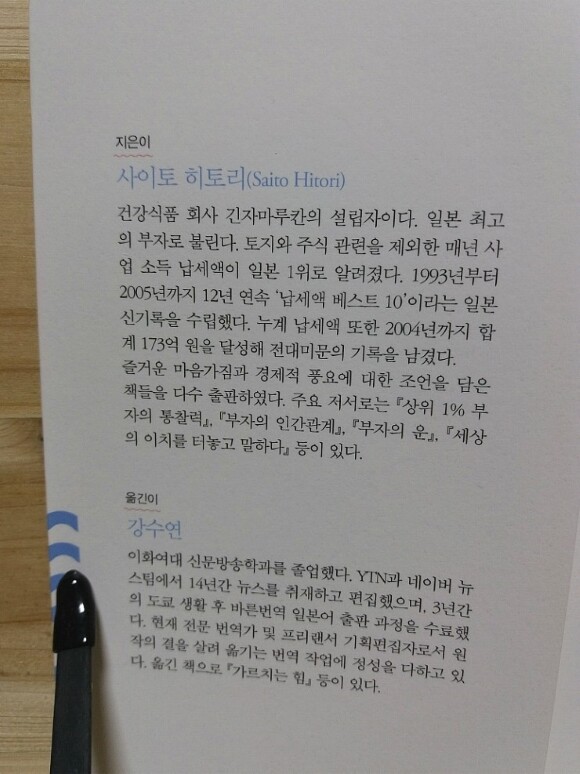 지은이
사이토 히토리(Saito Hitori)
건강식품 회사 긴자마루칸의 설립자이다. 일본 최고
의 부자로 불린다. 토지와 주식 관련을 제외한 매년 사
업 소득 납세액이 일본 1위로 알려졌다. 1993년부터
2005년까지 12년 연속 ‘납세액 베스트 10’이라는 일본
신기록을 수립했다. 누계 납세액 또한 2004년까지 합
계 173억 원을 달성해 전대미문의 기록을 남겼다.
즐거운 마음가짐과 경제적 풍요에 대한 조언을 담은
책들을 다수 출판하였다. 주요 저서로는 『상위 1% 부
자의 통찰력』, 『부자의 인간관계』, 『부자의 운』, 『세상
의 이치를 터놓고 말하다』 등이 있다.
옮긴이
강수연
이화여대 신문방송학과를 졸업했다. YTN과 네이버 뉴
스팀에서 14년간 뉴스를 취재하고 편집했으며, 3년간
의 도쿄 생활 후 바른번역 일본어 출판 과정을 수료했
다. 현재 전문 번역가 및 프리랜서 기획편집자로서 원
작의 결을 살려 옮기는 번역 작업에 정성을 다하고 있
다. 옮긴 책으로 『가르치는 힘』 등이 있다.